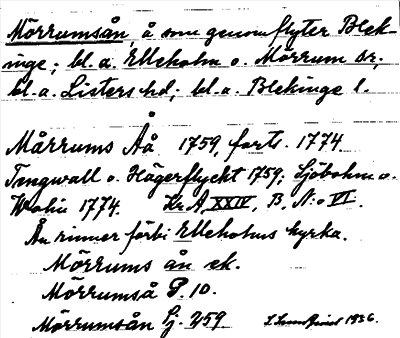 Mörrumsån, å som genomflyter Blek-
inge; bl. a. Elleholm o. Mörrum sr;
bl. a. Listers hd; bl. a. Blekinge l.
Mårrums Åå 1759, forts. 1774.
Tengwall o. Hägerflycht 1759; Sjöbohm o.
1774. Kr. A XXIV, B, N:o VI.
Ån rinner förbi Elleholms kyrka.
Mörrums ån ek.
Mörrumså P. 10.
Mörrumsån Sj. 259
1936.